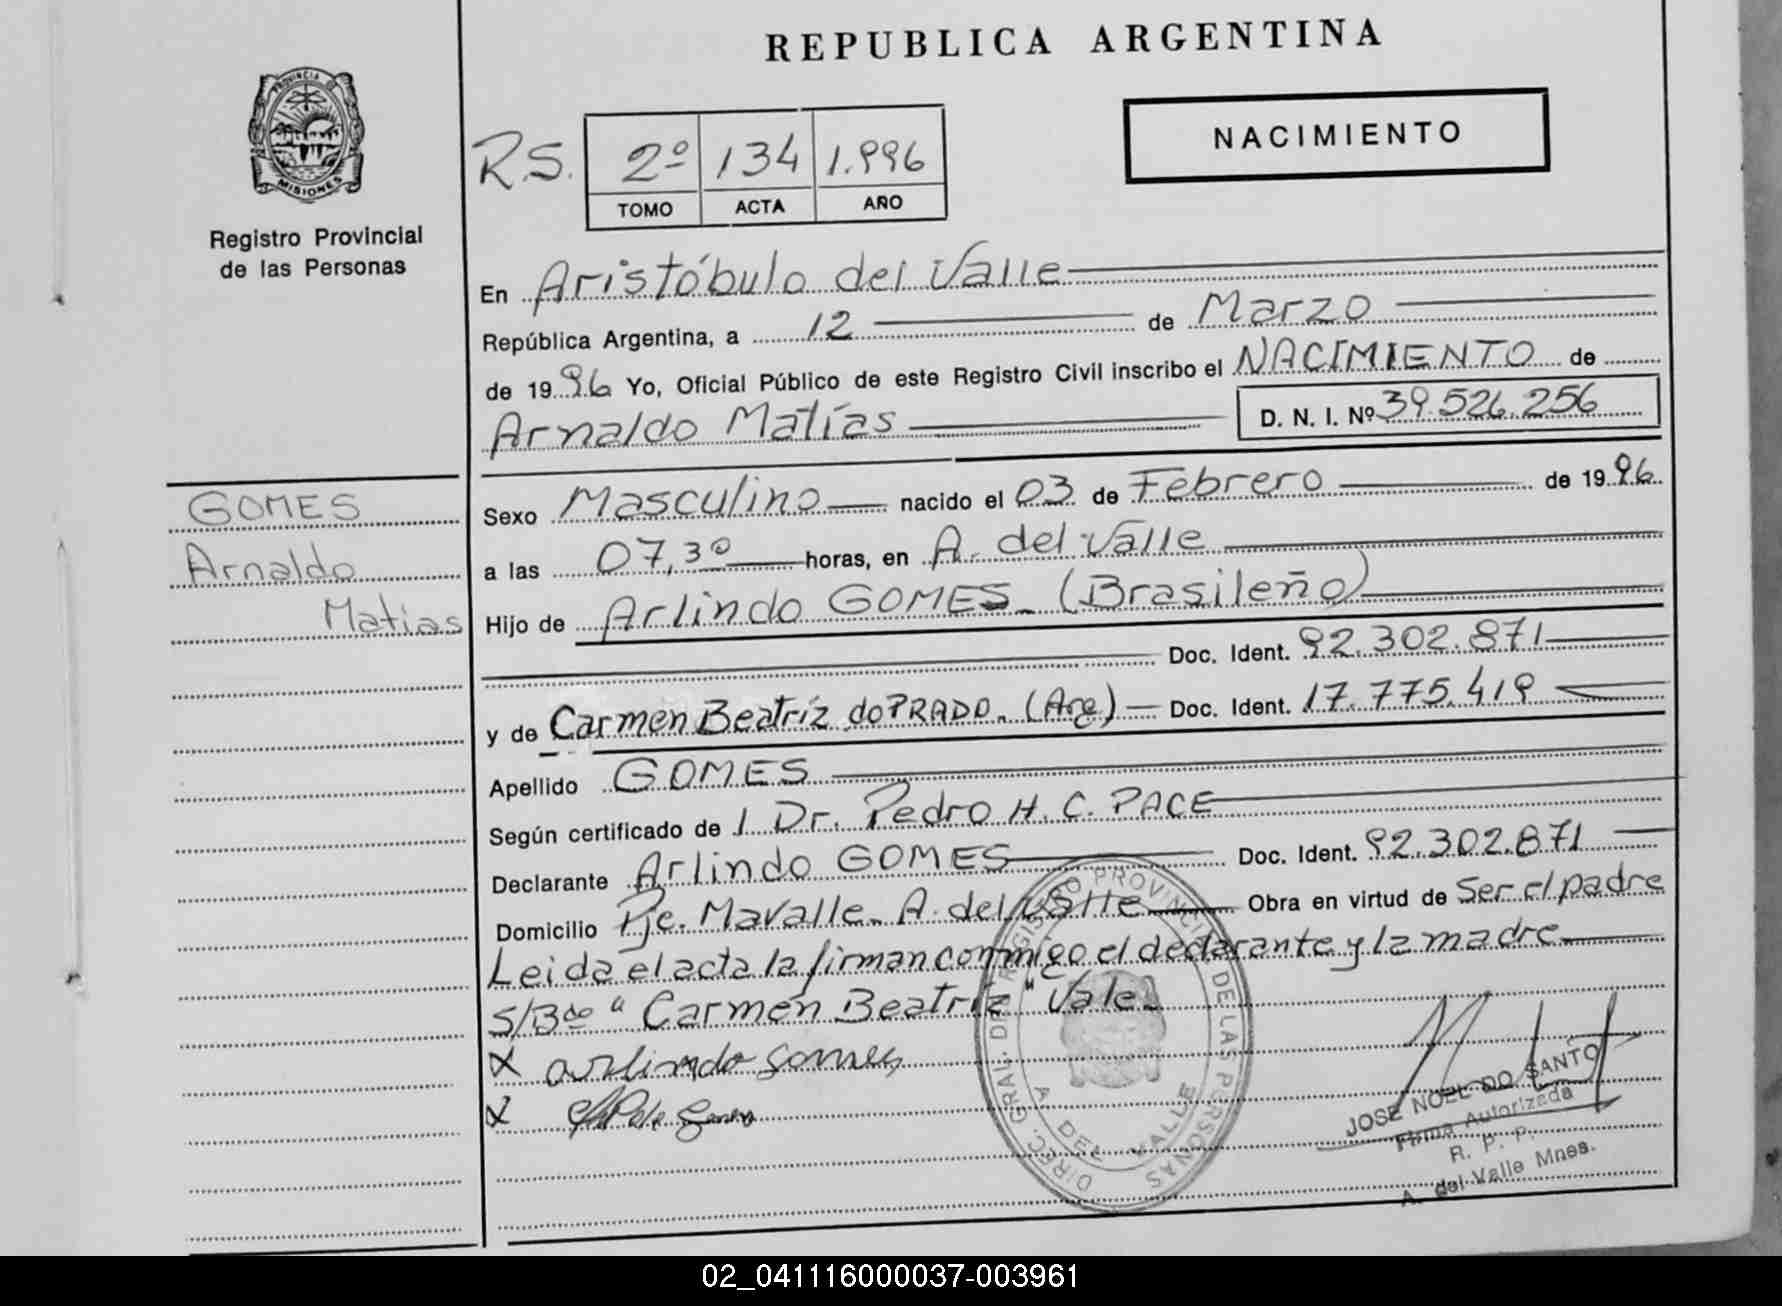 REPUBLICA ARGENTINA
PROVINCIA DE
MISIONES
Registro Provincial
de las Personas
R.S.
2º 134 1.996
TOMO ACTA AÑO
NACIMIENTO
En Aristóbulo del Valle
República Argentina, a 12 de Marzo
de 1996 Yo, Oficial Público de este Registro Civil inscribo el NACIMIENTO de
Arnaldo Matías D. N. I. Nº 39.526.256
GOMES
Arnaldo
Matias
Sexo Masculino nacido el 03 de Febrero de 1996
a las 07,30 horas, en A. del Valle
Hijo de Arlindo GOMES (Brasileño)
Doc. Ident. 92.302.871
y de Carmen Beatríz do PRADO. (Arg) Doc. Ident. 17.775.419
Apellido GOMES
Según certificado de / Dr. Pedro H. C. PACE
Declarante Arlindo GOMES Doc. Ident. 92.302.871
Domicilio Pje. Mavalle. A. del Valle Obra en virtud de Ser el padre
Leida el acta la firman conmigo el declarante y la madre
S/Bdo "Carmen Beatríz" Vale
X arlindo gomes
X
DIREC. GRAL. DEL REGISTRO PROVINCIAL DE LAS PERSONAS
A. DEL VALLE
JOSE NOEL DO SANTO
Firma Autorizada
R. P. P.
A. del Valle Mnes.
02_041116000037-003961